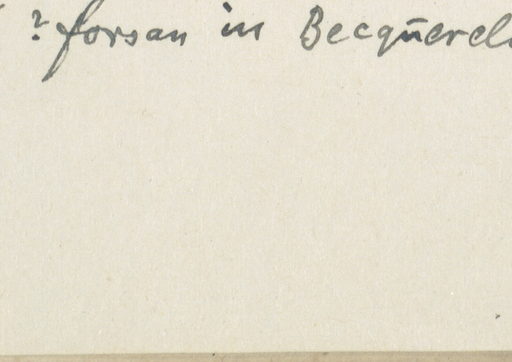 ? forsan in Becquerel